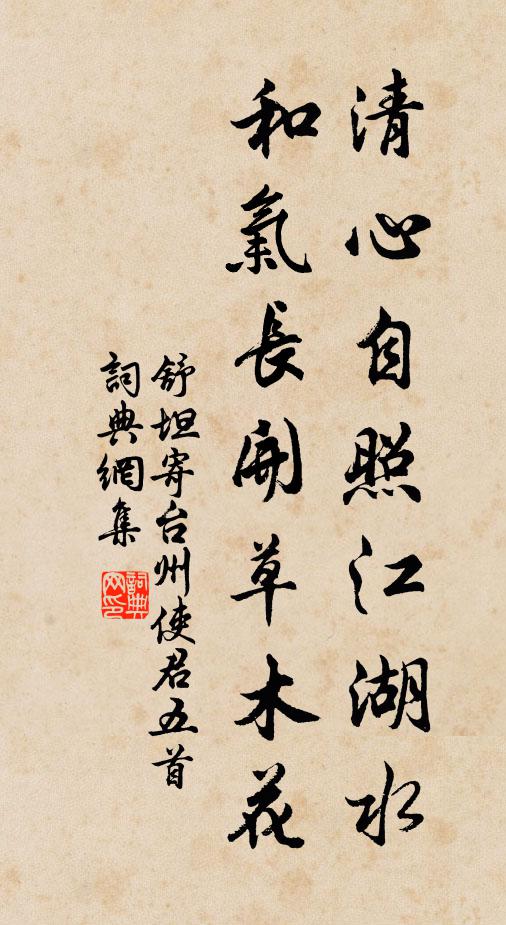 清心自照江湖水
和氣長開草木花
舒坦寄台州使君五首
詞典網集
詞典网印